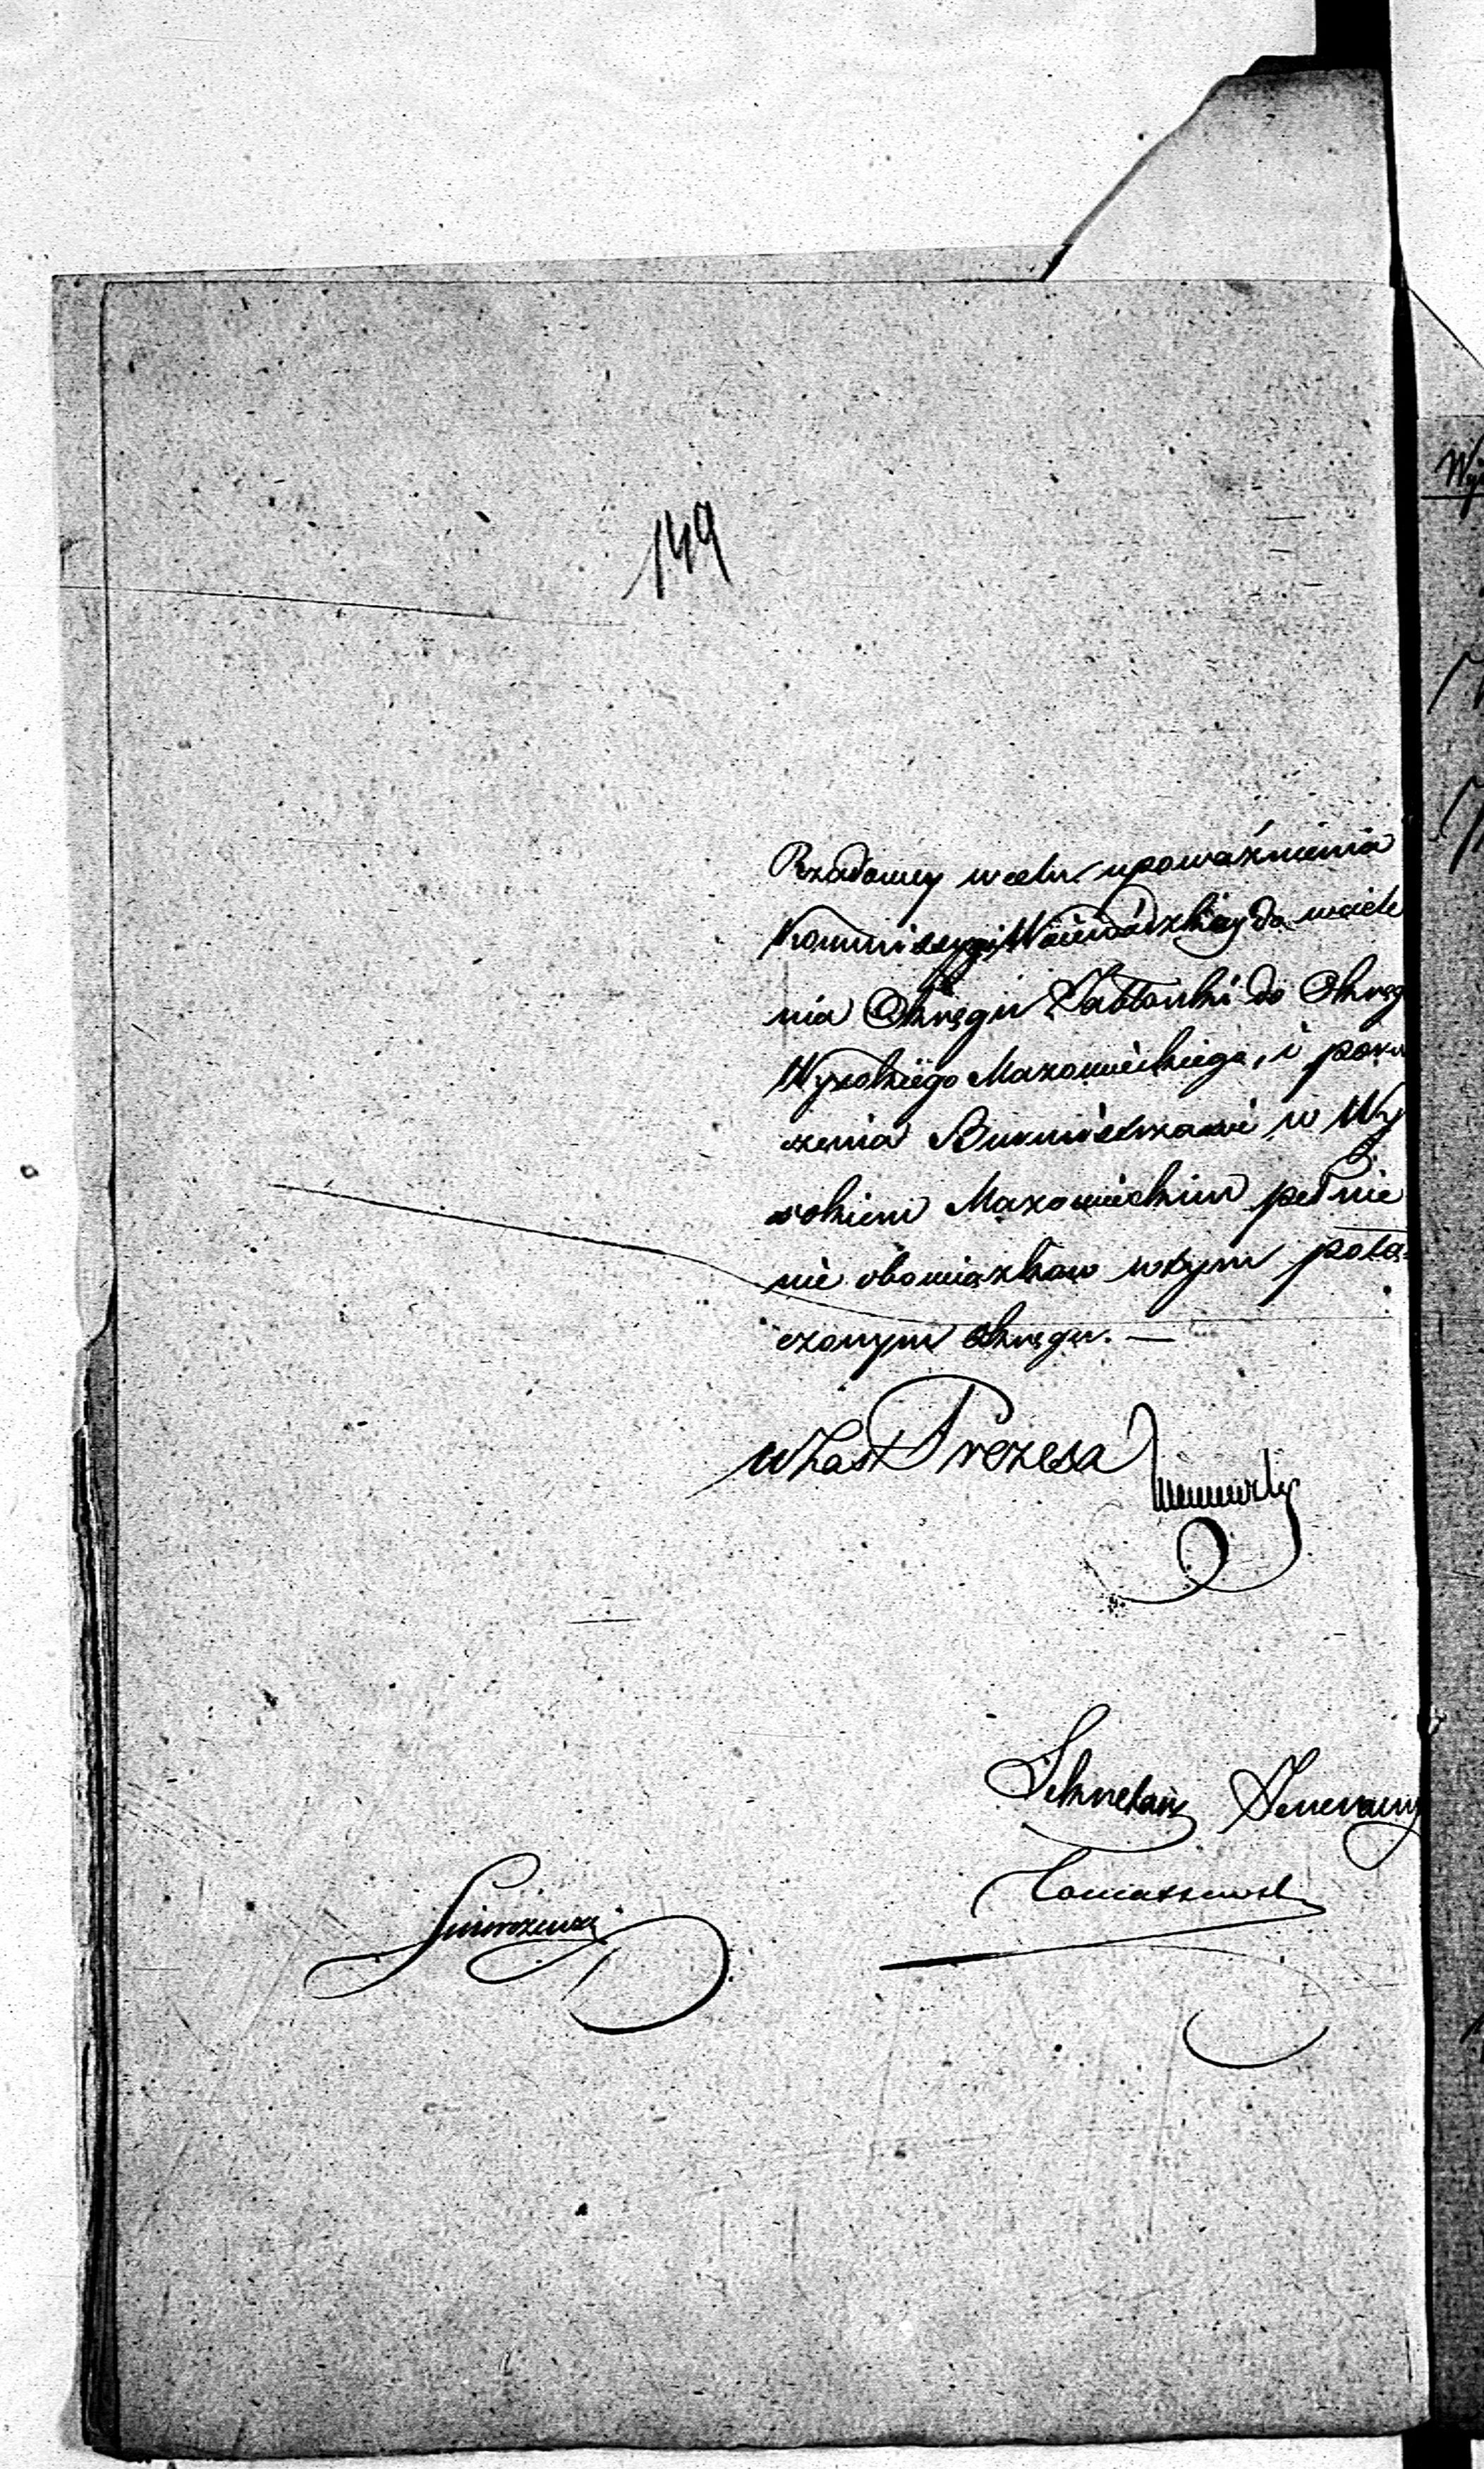 149
Rządowey w celu upoważnienia
Kommissyi Woiewódzkiey do wciele
nia Okręgu Jabłonki do Okręg
Wysokiego Mazowieckiego, i poru
czenia Burmistrzowi w Wy
sokiem Mazowieckim pełnie
nie obowiązków w tym połą
czonym okręgu. —
w Zast Prezesa
Sekretarz Jeneralny
Tomaszewski